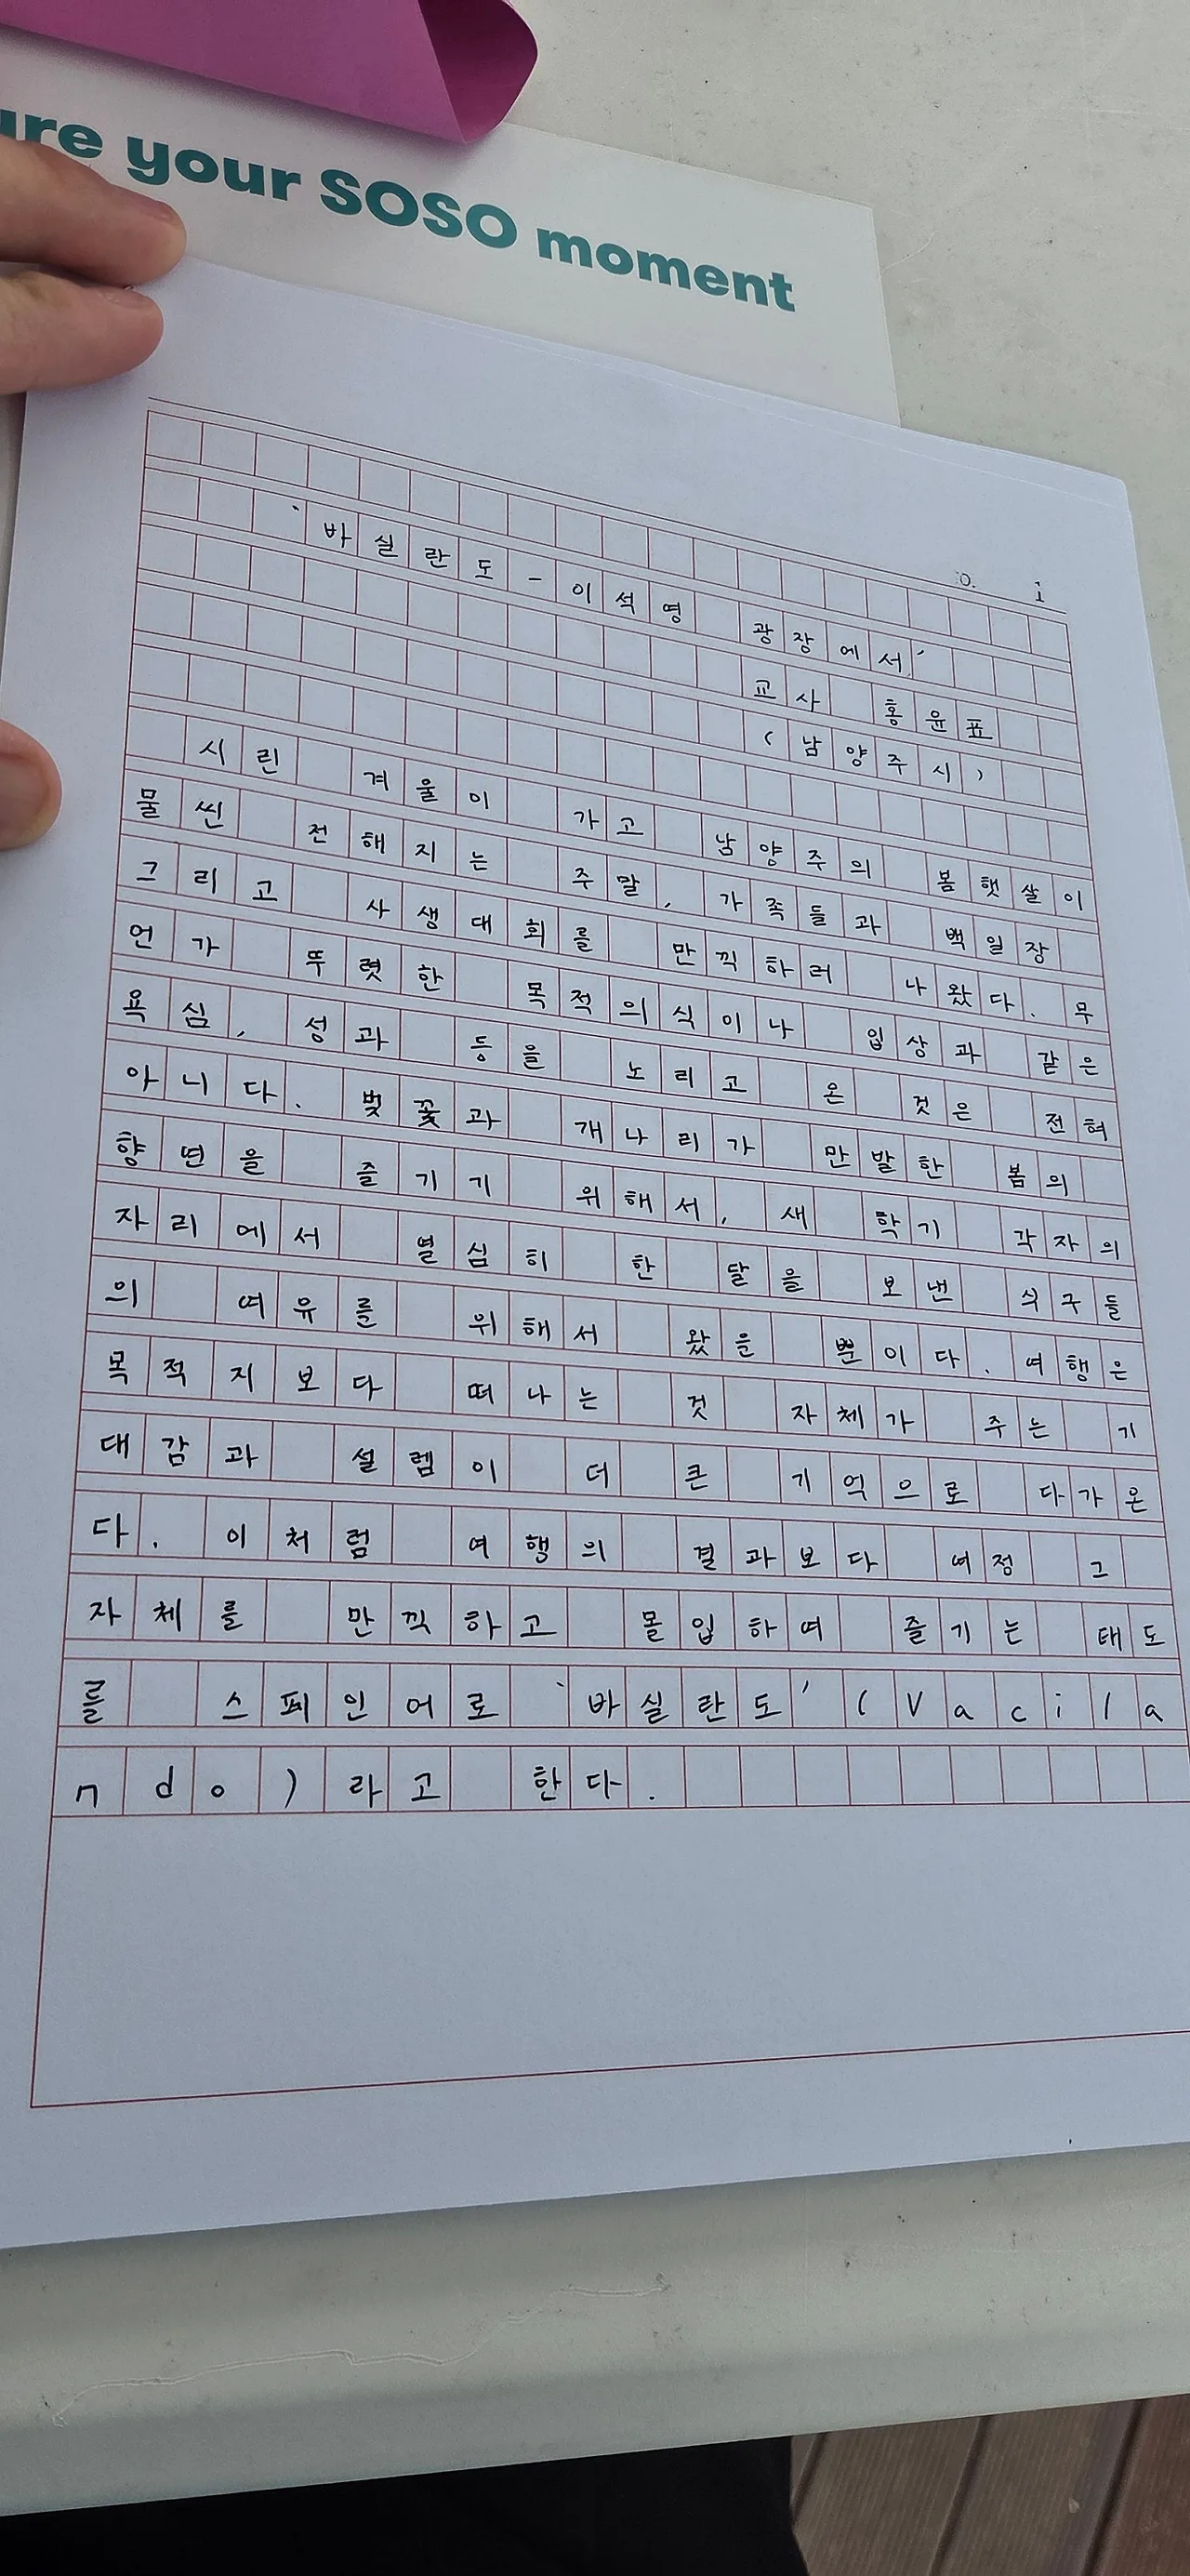 ure your SOSO moment
0. 1
'바실란도-이석영 광장에서'
교사 홍윤표
(남양주시)
시린 겨울이 가고 남양주의 봄햇살이
물씬 전해지는 주말, 가족들과 백일장
그리고 사생대회를 만끽하러 나왔다. 무
언가 뚜렷한 목적의식이나 입상과 같은
욕심, 성과 등을 노리고 온 것은 전혀
아니다. 벚꽃과 개나리가 만발한 봄의
향연을 즐기기 위해서, 새 학기 각자의
자리에서 열심히 한 달을 보낸 식구들
의 여유를 위해서 왔을 뿐이다. 여행은
목적지보다 떠나는 것 자체가 주는 기
대감과 설렘이 더 큰 기억으로 다가온
다. 이처럼 여행의 결과보다 여정 그
자체를 만끽하고 몰입하여 즐기는 태도
를 스페인어로 '바실란도'(Vacila
ndo)라고 한다.